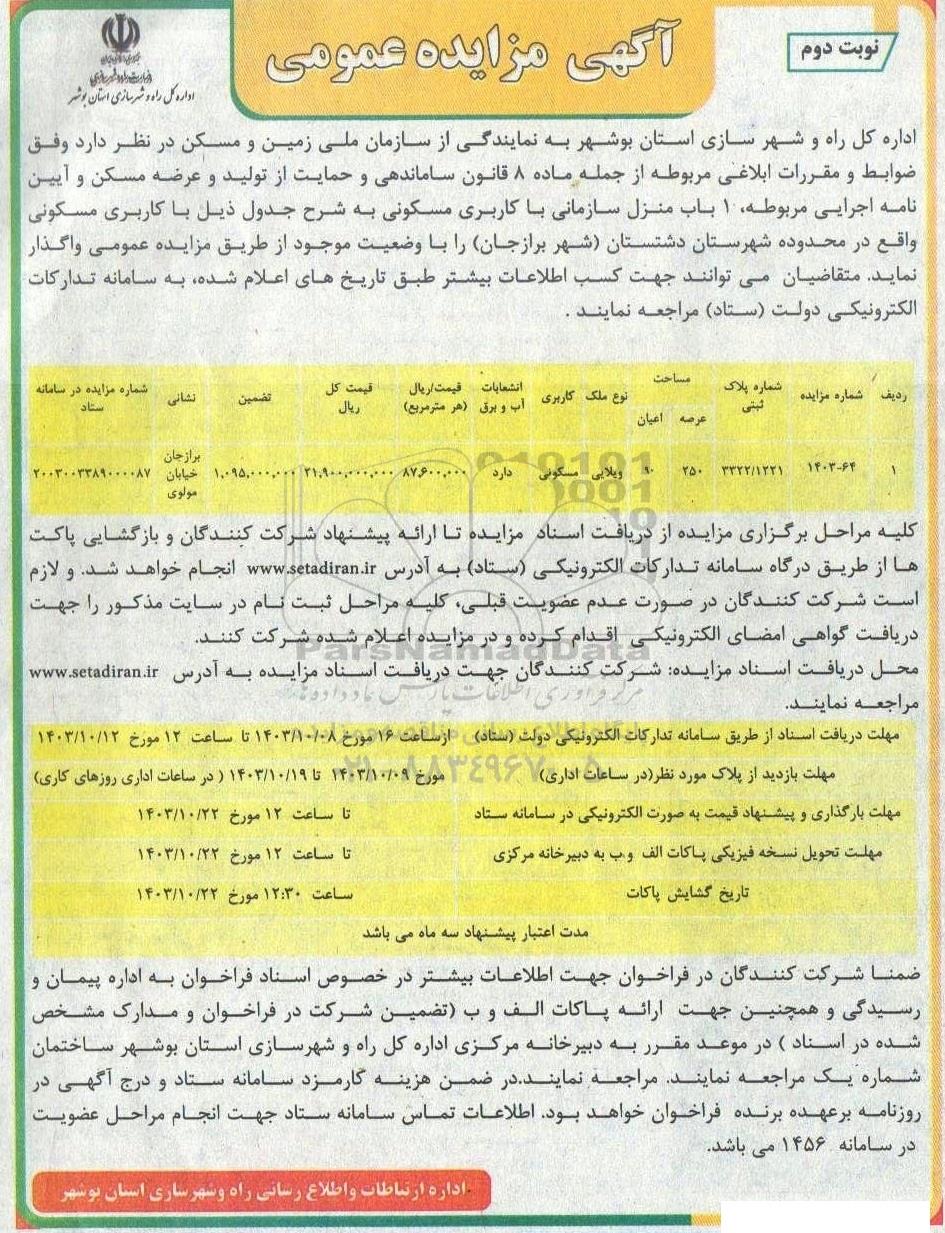 نوبت دوم
آگهی مزایده عمومی
جمهوری اسلامی ایران
وزارت راه و شهرسازی
اداره کل راه و شهرسازی استان بوشهر
اداره کل راه و شهر سازی استان بوشهر به نمایندگی از سازمان ملی زمین و مسکن در نظر دارد وفق
ضوابط و مقررات ابلاغی مربوطه از جمله ماده ۸ قانون ساماندهی و حمایت از تولید و عرضه مسکن و آیین
نامه اجرایی مربوطه، ۱ باب منزل سازمانی با کاربری مسکونی به شرح جدول ذیل با کاربری مسکونی
واقع در محدوده شهرستان دشتستان (شهر برازجان) را با وضعیت موجود از طریق مزایده عمومی واگذار
نماید. متقاضیان می توانند جهت کسب اطلاعات بیشتر طبق تاریخ های اعلام شده، به سامانه تدارکات
الکترونیکی دولت (ستاد) مراجعه نمایند .
ردیف شماره مزایده شماره پلاک ثبتی مساحت عرصه اعیان نوع ملک کاربری انشعابات آب و برق قیمت/ریال (هر مترمربع) قیمت کل ریال تضمین نشانی شماره مزایده در سامانه ستاد
۱ ۱۴۰۳-۶۴ ۳۳۲۲/۱۲۲۱ ۲۵۰ ۹۰ ویلایی مسکونی دارد ۸۷,۶۰۰,۰۰۰ ۲۱,۹۰۰,۰۰۰,۰۰۰ ۱,۰۹۵,۰۰۰,۰۰۰ برازجان خیابان مولوی ۲۰۰۳۰۰۳۳۸۹۰۰۰۰۸۷
کلیه مراحل برگزاری مزایده از دریافت اسناد مزایده تا ارائه پیشنهاد شرکت کنندگان و بازگشایی پاکت
ها از طریق درگاه سامانه تدارکات الکترونیکی (ستاد) به آدرس www.setadiran.ir انجام خواهد شد. و لازم
است شرکت کنندگان در صورت عدم عضویت قبلی، کلیه مراحل ثبت نام در سایت مذکور را جهت
دریافت گواهی امضای الکترونیکی اقدام کرده و در مزایده اعلام شده شرکت کنند.
ParsNamadData
محل دریافت اسناد مزایده: شرکت کنندگان جهت دریافت اسناد مزایده به آدرس www.setadiran.ir
مراجعه نمایند.
مهلت دریافت اسناد از طریق سامانه تدارکات الکترونیکی دولت (ستاد) از ساعت ۱۶ مورخ ۱۴۰۳/۱۰/۰۸ تا ساعت ۱۲ مورخ ۱۴۰۳/۱۰/۱۲
مهلت بازدید از پلاک مورد نظر(در ساعات اداری) مورخ ۱۴۰۳/۱۰/۰۹ تا ۱۴۰۳/۱۰/۱۹ ( در ساعات اداری روزهای کاری)
مهلت بارگذاری و پیشنهاد قیمت به صورت الکترونیکی در سامانه ستاد تا ساعت ۱۲ مورخ ۱۴۰۳/۱۰/۲۲
مهلت تحویل نسخه فیزیکی پاکات الف و.ب به دبیرخانه مرکزی تا ساعت ۱۲ مورخ ۱۴۰۳/۱۰/۲۲
تاریخ گشایش پاکات ساعت ۱۲:۳۰ مورخ ۱۴۰۳/۱۰/۲۲
مدت اعتبار پیشنهاد سه ماه می باشد
ضمنا شرکت کنندگان در فراخوان جهت اطلاعات بیشتر در خصوص اسناد فراخوان به اداره پیمان و
رسیدگی و همچنین جهت ارائه پاکات الف و ب (تضمین شرکت در فراخوان و مدارک مشخص
شده در اسناد ) در موعد مقرر به دبیرخانه مرکزی اداره کل راه و شهرسازی استان بوشهر ساختمان
شماره یک مراجعه نمایند. مراجعه نمایند.در ضمن هزینه کارمزد سامانه ستاد و درج آگهی در
روزنامه برعهده برنده فراخوان خواهد بود. اطلاعات تماس سامانه ستاد جهت انجام مراحل عضویت
در سامانه ۱۴۵۶ می باشد.
اداره ارتباطات واطلاع رسانی راه وشهرسازی استان بوشهر